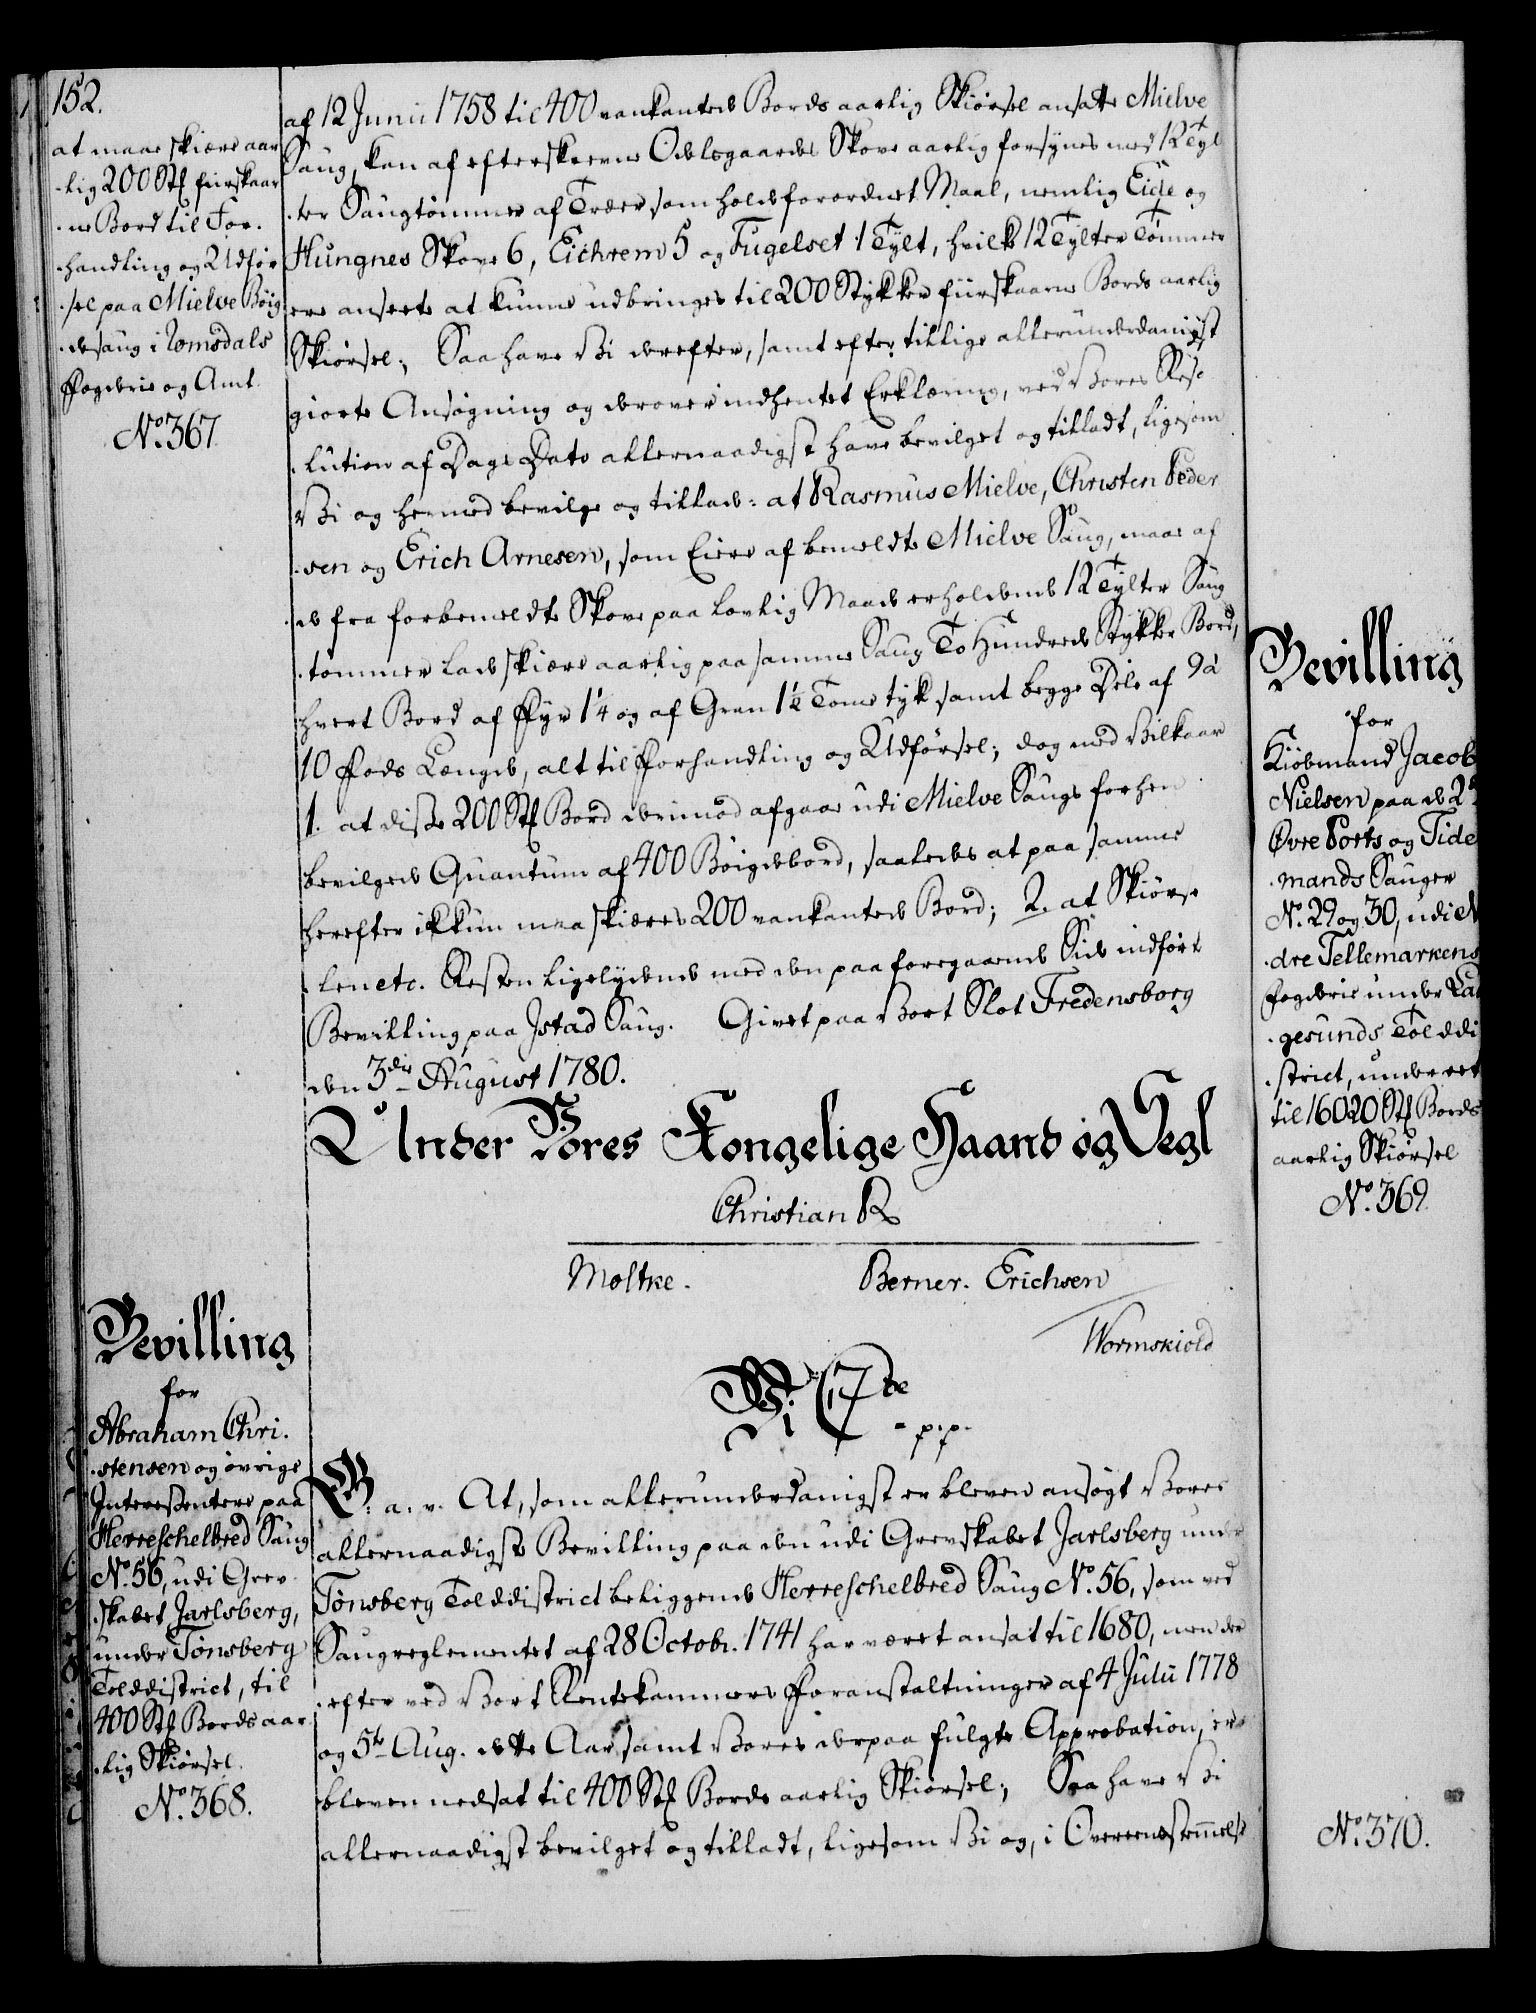 152.
at maae skiære aar
lig 200 Stk fiirskaar
ne Bord til For
handling og Udfør
sel paa Mielve Bøig
desaug i Romsdals
Fogderie og Amt.
No. 367.
af 12 Junii 1758 til 400 vankantede Bords aarlig Skiørsel ansatte Mielve
Saug, kan af efterskrevne Odelsgaards Skove aarlig forsynes med 12 Tyl
ter Saugtømmer af Træer som holde forordnet Maal, nemlig Eide og
Hungnes Skove 6, Eichrem 5 og Fugelset 1 Tylt, hvilke 12 Tylter Tømmer
ere anseete at kunne udbringes til 200 Stykker fiirskaarne Bords aarlig
Skiørsel; Saa have Vi derefter, samt efter tillige allerunderdanigst
giorte Ansøgning og derover indhentet Erklæring, ved Vores Reso
lution af Dags Dato allernaadigst have bevilget og tilladt, ligesom
Vi og hermed bevilge og tillade: at Rasmus Mielve, Christen Peder
sen og Erich Arnesen, som Eiere af bemeldte Mielve Saug, maae af
de fra forbemeldte Skove paa lovlig Maade erholdende 12 Tylter Saug
tømmer lade skiære aarlig paa samme Saug To Hundrede Stykker Bord,
hvert Bord af Fyr 1¼ og af Gran 1½ Tomme tyk samt begge Dele af 9 à
10 Fods Længde, alt til Forhandling og Udførsel; dog med Vilkaar
1. at diße 200 Stk Bord derimod afgaae udi Mielve Saugs forhen
bevilgede Quantum af 400 Bøigdebord, saaledes at paa samme
herefter ikkun maa skiæres 200 vankantede Bord; 2. at Skiørse
len etc. Resten ligelydende med den paa foregaaende Side indførte
Bevilling paa Istad Saug. Givet paa Vort Slot Fredensborg
den 3die August 1780.
Under Vores Kongelige Haand og Segl
Christian R
Moltke. Berner. Erichsen
Wormskiold
Bevilling
for
Abraham Chri
stensen og øvrige
Intereßentere paa
Herreschelbred Saug
No. 56, udi Grev
skabet Jarlsberg,
under Tønsberg
Tolddistrict, til
400 Stk Bords aar
lig Skiørsel.
No. 368.
Vi C 7de
p. p.
G. a. v. At, som allerunderdanigst er bleven ansøgt Vores
allernaadigste Bevilling paa den udi Grevskabet Jarlsberg under
Tønsberg Tolddistrict beliggende Herreschelbred Saug No. 56, som ved
Saugreglementet af 28 Octobr. 1741 har været ansat til 1680, men der
efter ved Vort Rentekammers Foranstaltninger af 4 Julii 1778
og 5te Aug. dette Aar, samt Vores derpaa fulgte Approbation, er
bleven nedsat til 400 Stk Bords aarlig Skiørsel; Saa have Vi
allernaadigst bevilget og tilladt, ligesom Vi og, i Overeensstemmelse
Bevilling
for
Kiøbmand Jacob
Nielsen paa de 2de
Øvre Ports og Tide
mands Sauger
No. 29 og 30, udi N
dre Tellemarkens
Fogderie under Lan
gesunds Tolddi
strict, under eet
til 16020 Stk Bords
aarlig Skiørsel
No. 369.
No. 370.